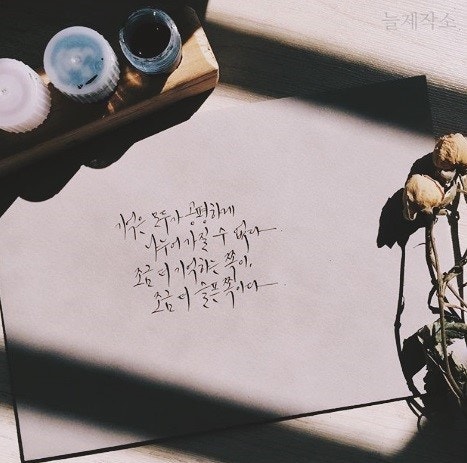 늘게작소
기억은 모두가 공평하게
나누어 가질 수 없다.
조금 더 기억하는 쪽이,
조금 더 슬픈 쪽이다.